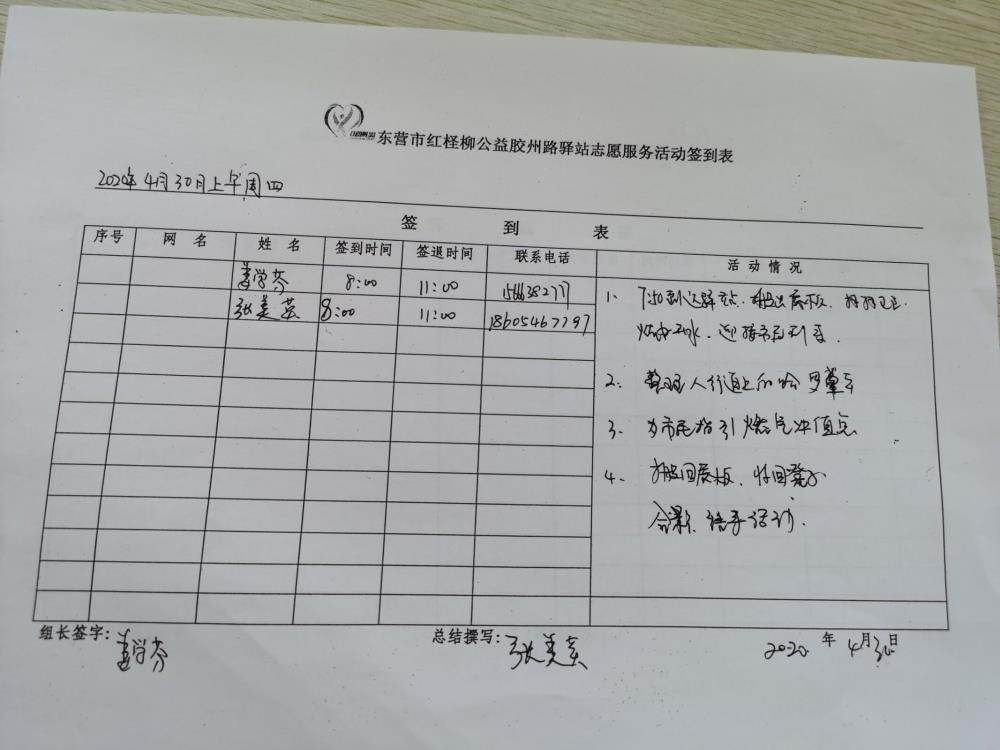 东营市红柽柳公益胶州路驿站志愿服务活动签到表
2020年4月30日上午周四
签 到 表
序号 网 名 姓 名 签到时间 签退时间 联系电话 活动情况
姜学芬 8:00 11:00
张美英 8:00 11:00 18605467797
1、7:50到达驿站.搬出展板.打扫卫生.
烧水.迎接市民到来.
2、整理人行道上的哈罗单车
3、为市民指引燃气冲值点
4、搬回展板、收回凳子
合影、结束活动.
组长签字：姜学芬 总结撰写：张美英 2020年4月30日